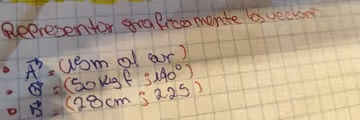 Representar graficamente los vectores
• A = (45m al sur)
• B = (50 kgf ; 140°)
• B = (28cm ; 225)